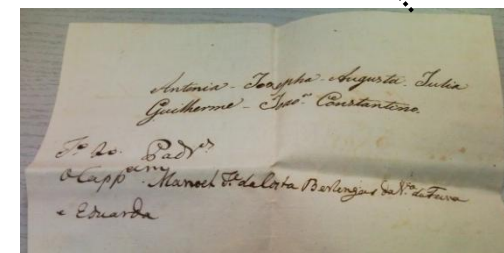 Antonia - Josepha - Augusta. Julia
Guilherme - Constantino.
Padr.ᵒˢ
O Capp.ᵃᵐ Manoel da Costa Berlengas da
e Eduarda